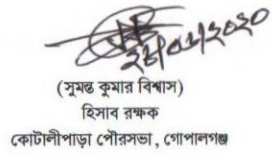 ২৮/০৬/২০২০
(সুমন্ত কুমার বিশ্বাস)
হিসাব রক্ষক
কোটালীপাড়া পৌরসভা, গোপালগঞ্জ